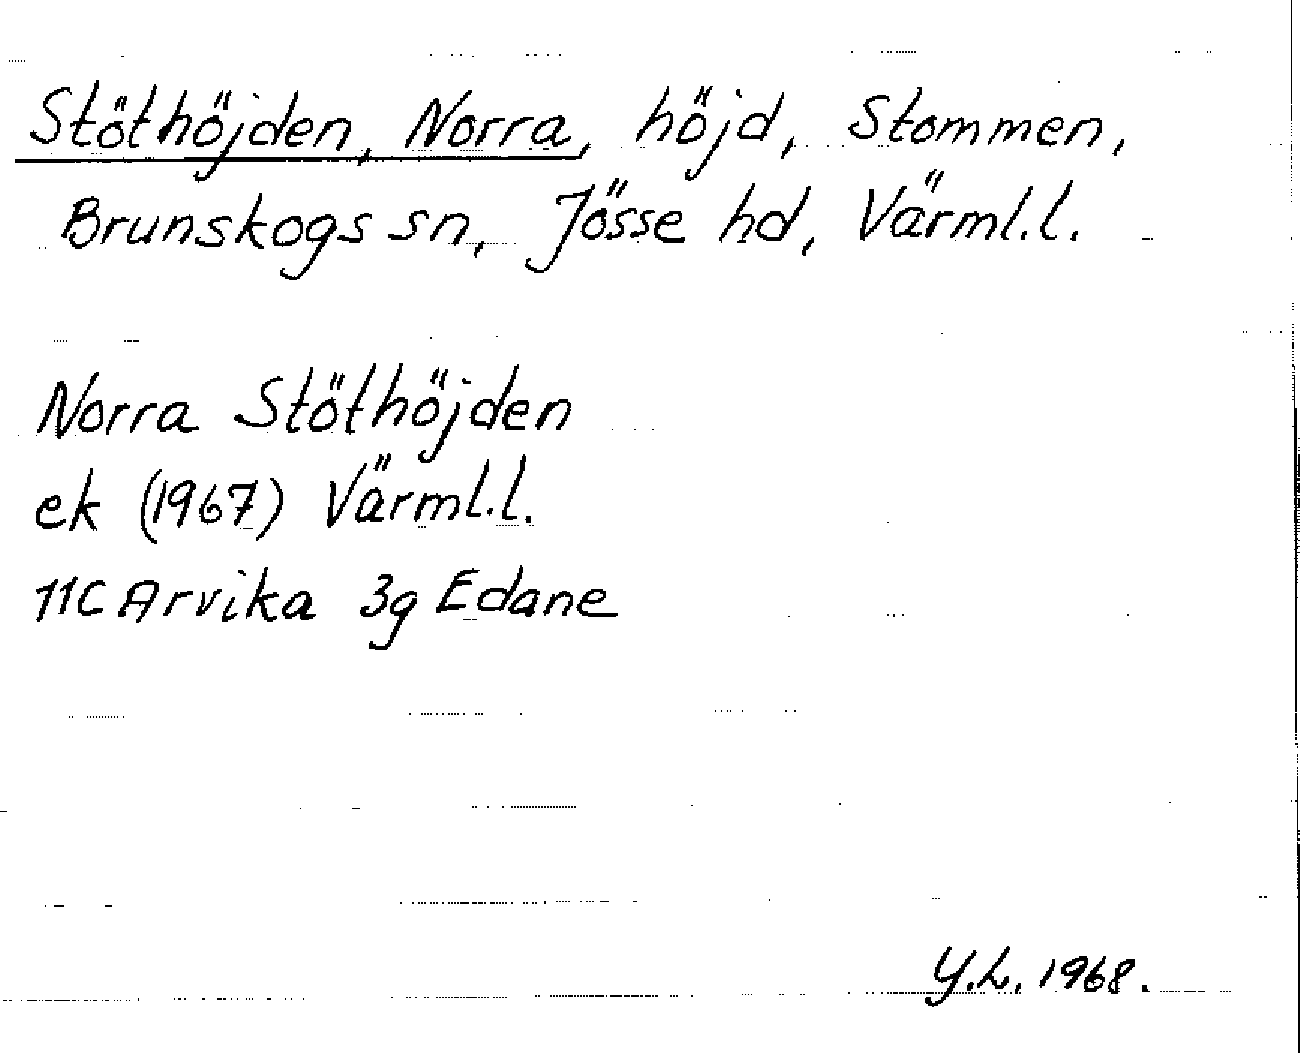 Stöthöjden, Norra, höjd, Stommen,
Brunskogs sn, Jösse hd, Värml.l.
Norra Stöthöjden
ek (1967) Värml.l.
11C Arvika 3g Edane
Y.L. 1968.